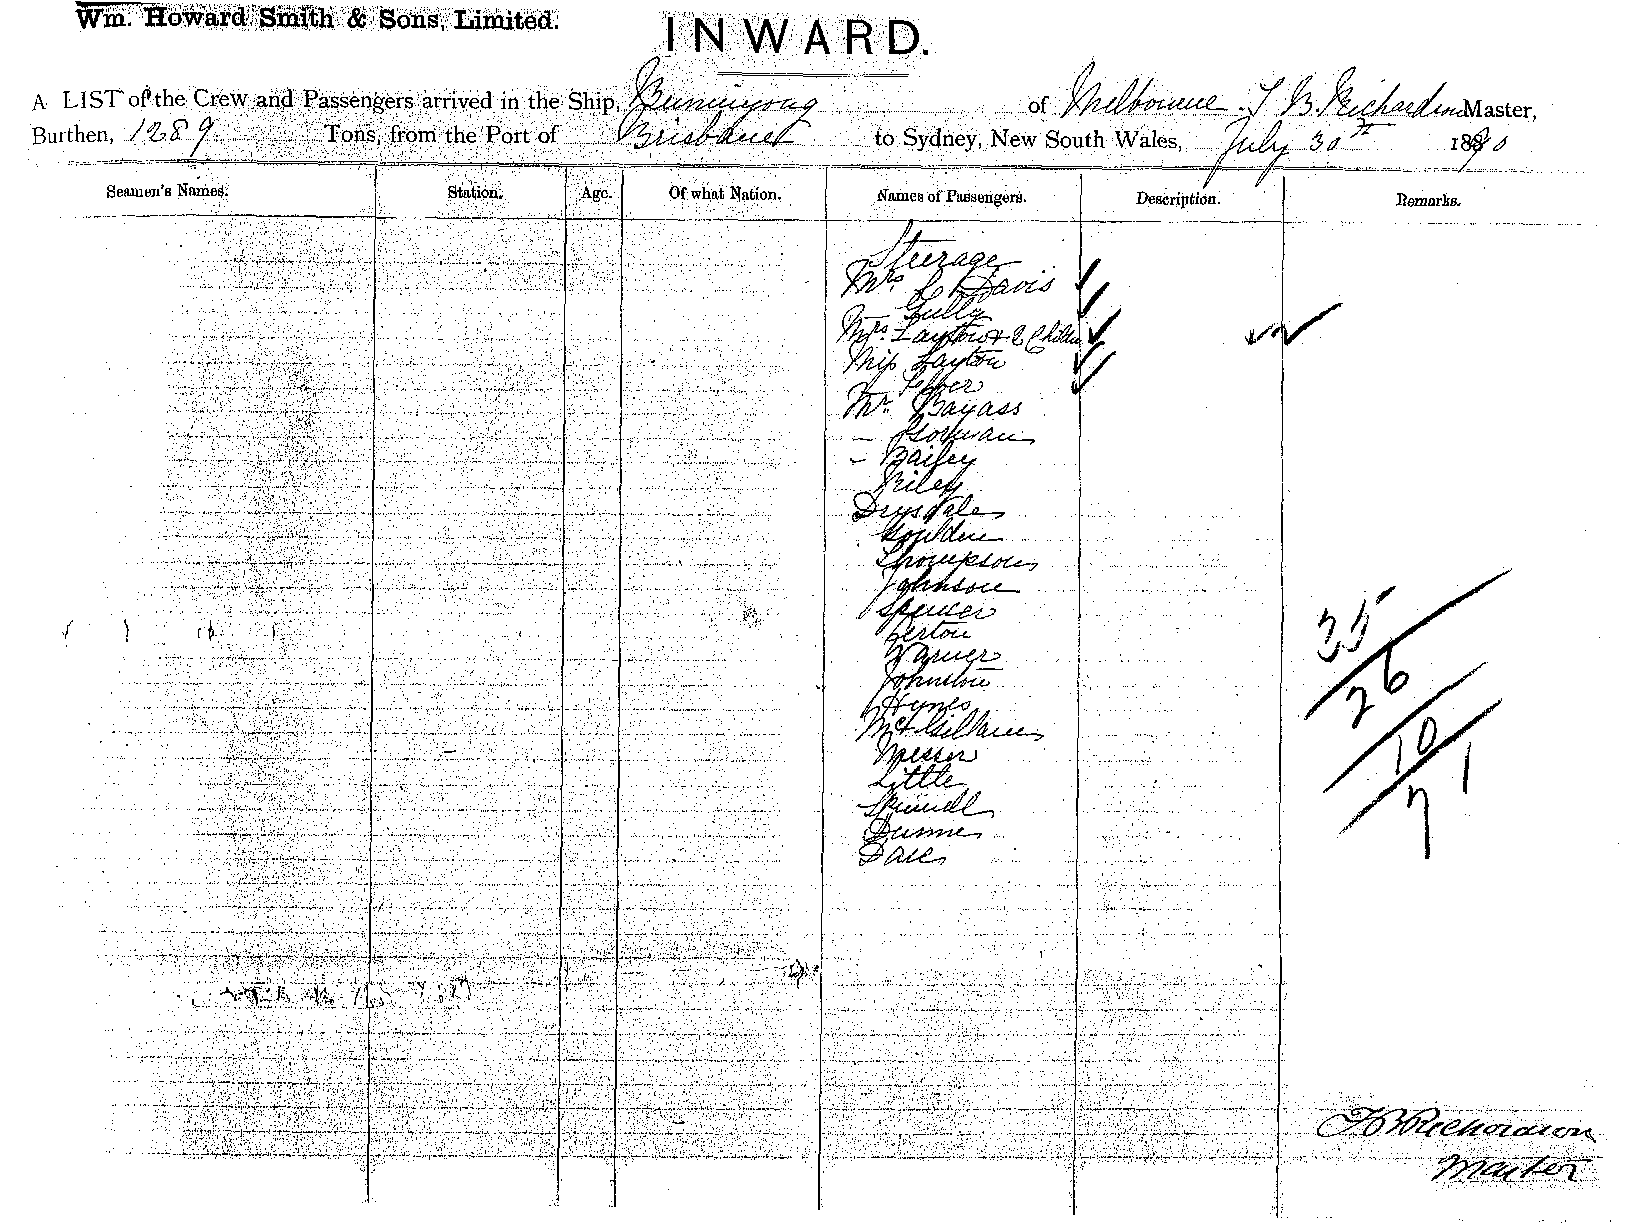 Wm. Howard Smith & Sons, Limited.
INWARD.
A LIST of the Crew and Passengers arrived in the Ship, Buninyong of Melbourne. T B. Richardson Master,
Burthen, 1289 Tons, from the Port of Brisbane to Sydney, New South Wales, July 30th 1890
Seamen's Names. Station. Age. Of what Nation. Names of Passengers. Description. Remarks.
Steerage
Mrs. Davis
Gully
Mrs. Layton & 2 Children
Miss Layton
Mr. Bayass
- Gorman
- Bailey
Riley
Drysdale
Goulden
Thompson
Johnson
Spencer
Warner
Johnston
Hynes
Messer
Little
Dunne
Dale
35
26
10
7 1
Richardson
Master